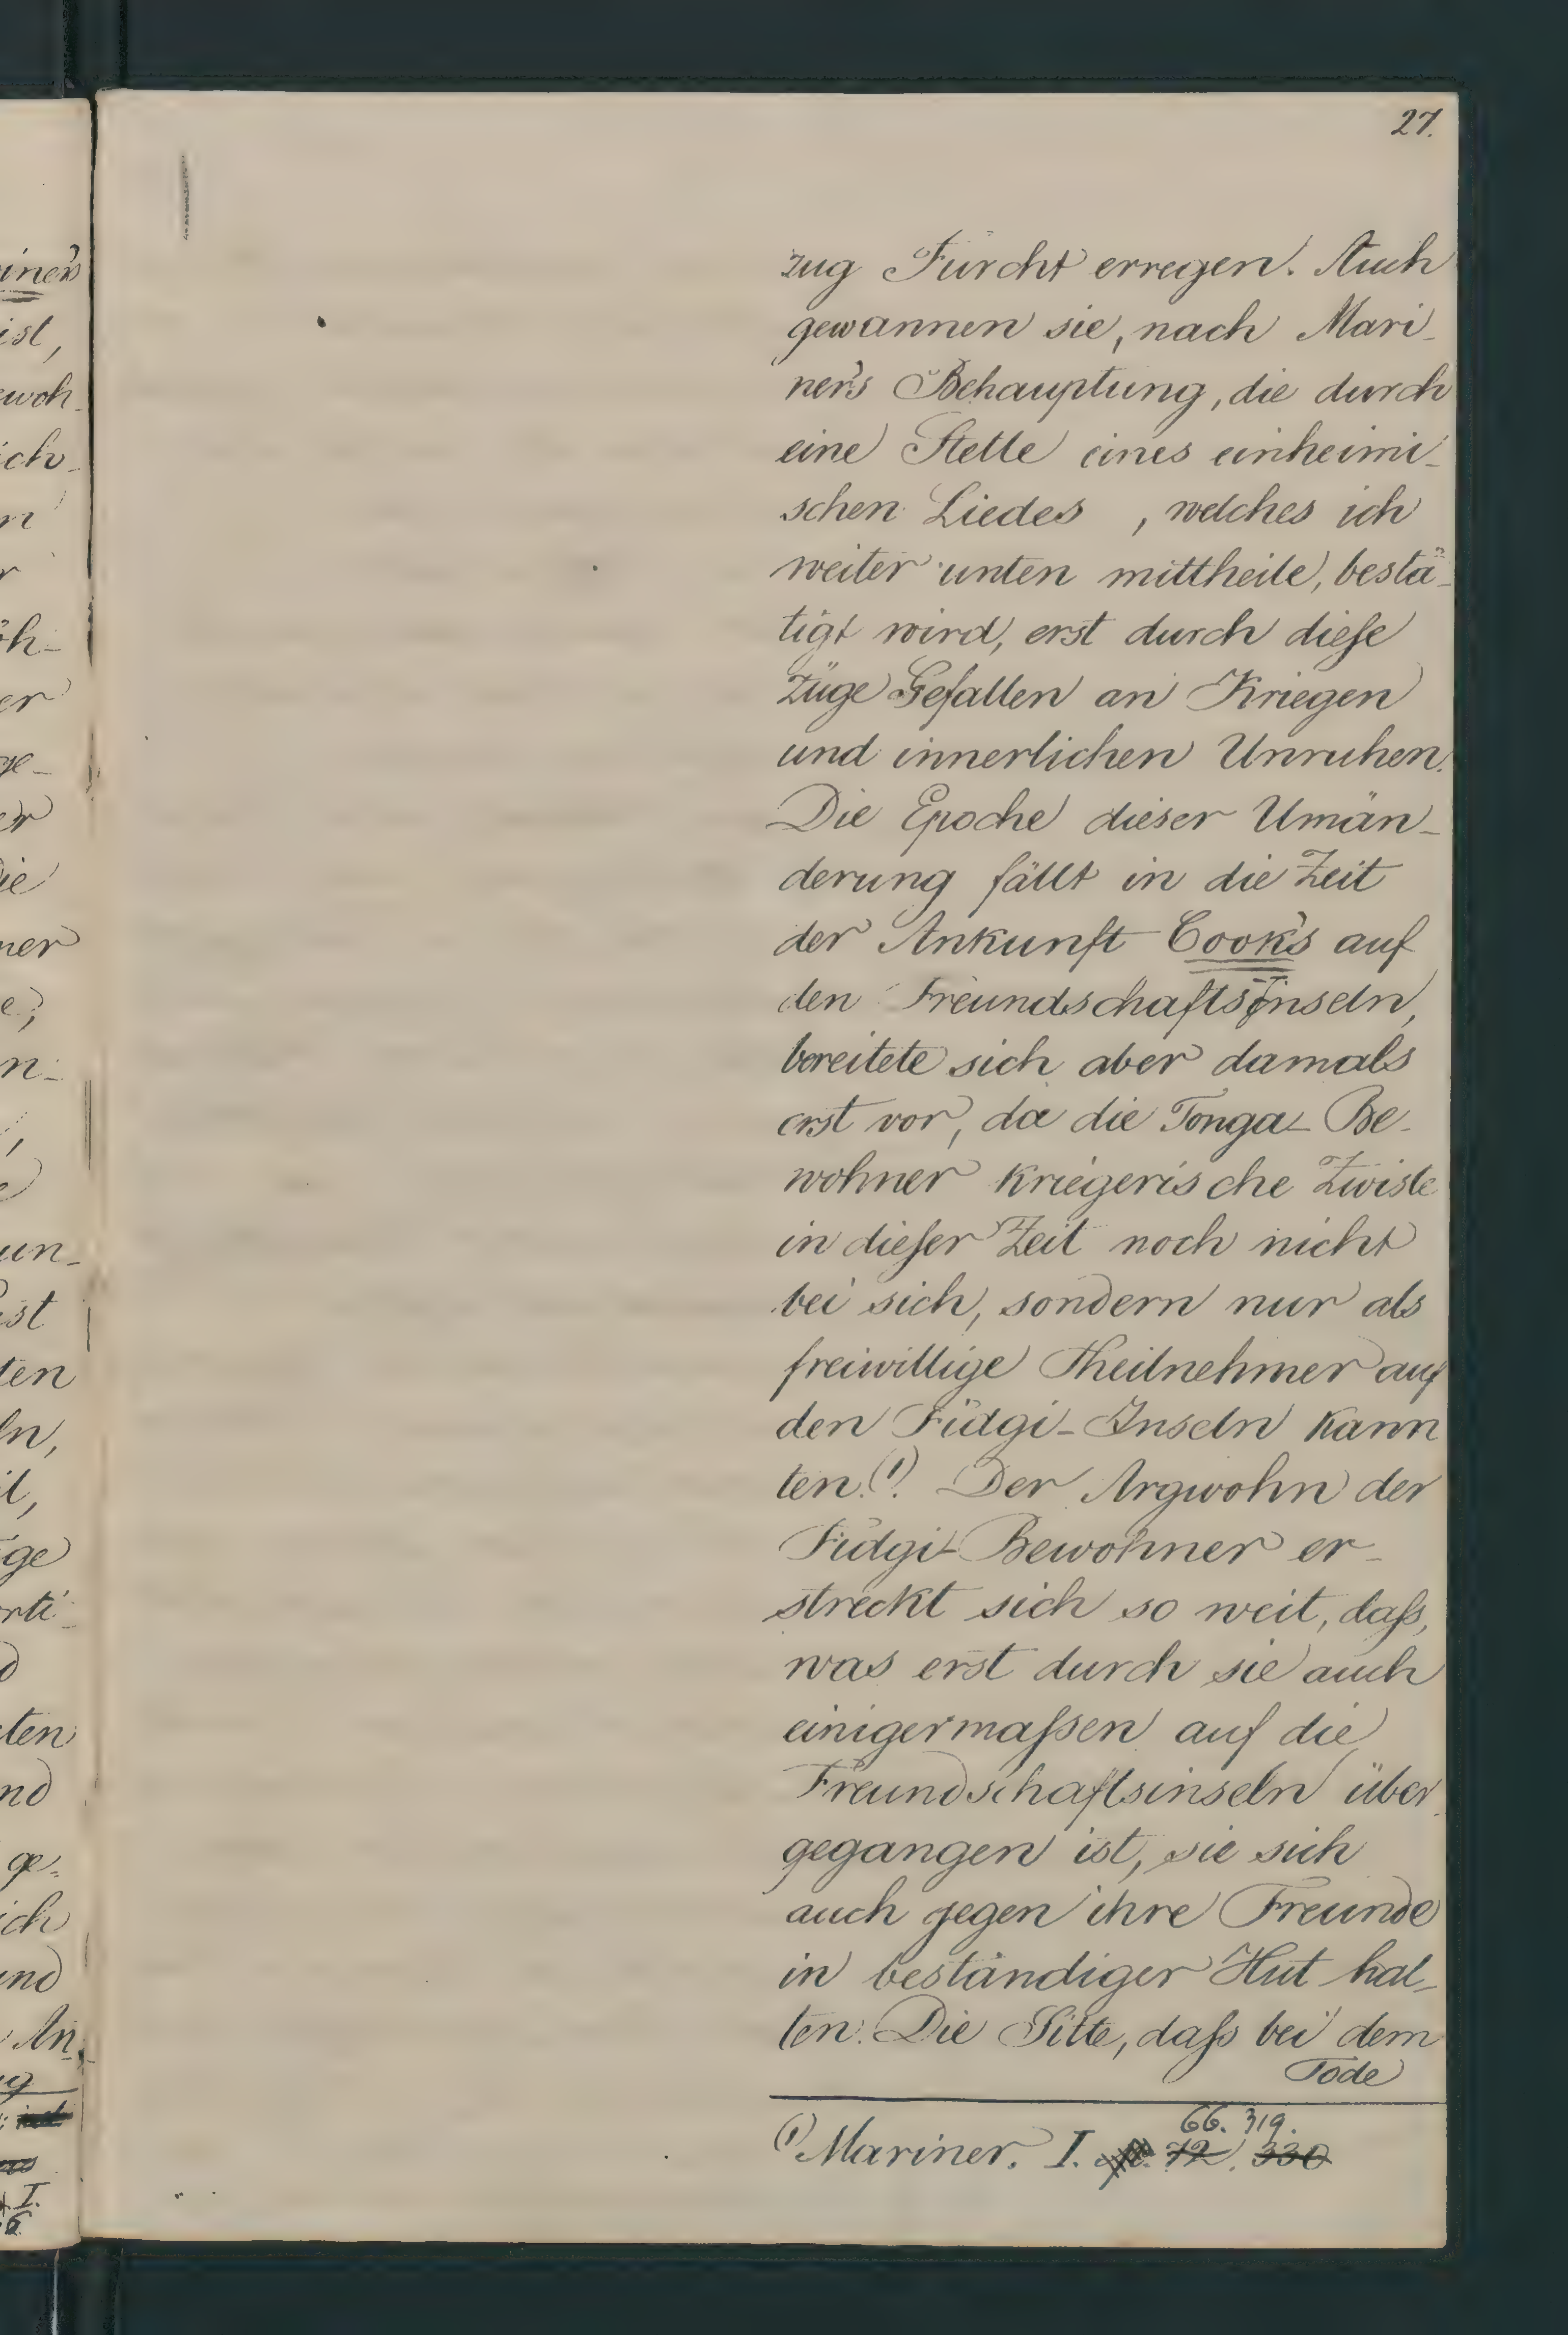 27.
zug Furcht erregen. Auch
gewannen sie, nach Mari-
ner's Behauptung, die durch
eine Stelle eines einheimi-
schen Liedes , welches ich
weiter unten mittheile, bestä-
tigt wird, erst durch diese
Züge Gefallen an Kriegen
und innerlichen Unruhen.
Die Epoche dieser Umän-
derung fällt in die Zeit
der Ankunft Cook's auf
den Freundschaftsinseln,
bereitete sich aber damals
erst vor, da die Tonga-Be-
wohner kriegerische Zwiste
in dieser Zeit noch nicht
bei sich, sondern nur als
freiwillige Theilnehmer auf
den Fidgi-Inseln kann
ten.(1). Der Argwohn der
Fidgi-Bewohner er-
streckt sich so weit, daß,
was erst durch sie auch
einigermaßen auf die
Freundschaftsinseln über
gegangen ist, sie sich
auch gegen ihre Freunde
in beständiger Hut hal-
ten. Die Sitte, daß bei dem
Tode
66. 319.
(1) Mariner. I. 72. 330
iner's
ist,
ewoh-
ich-
n
r
öh-
er
ge-
er
die
ner
e;
n-
un-
st
ten
ln,
il,
ge
rti-
ten
nd
ge-
ich
und
An
I.